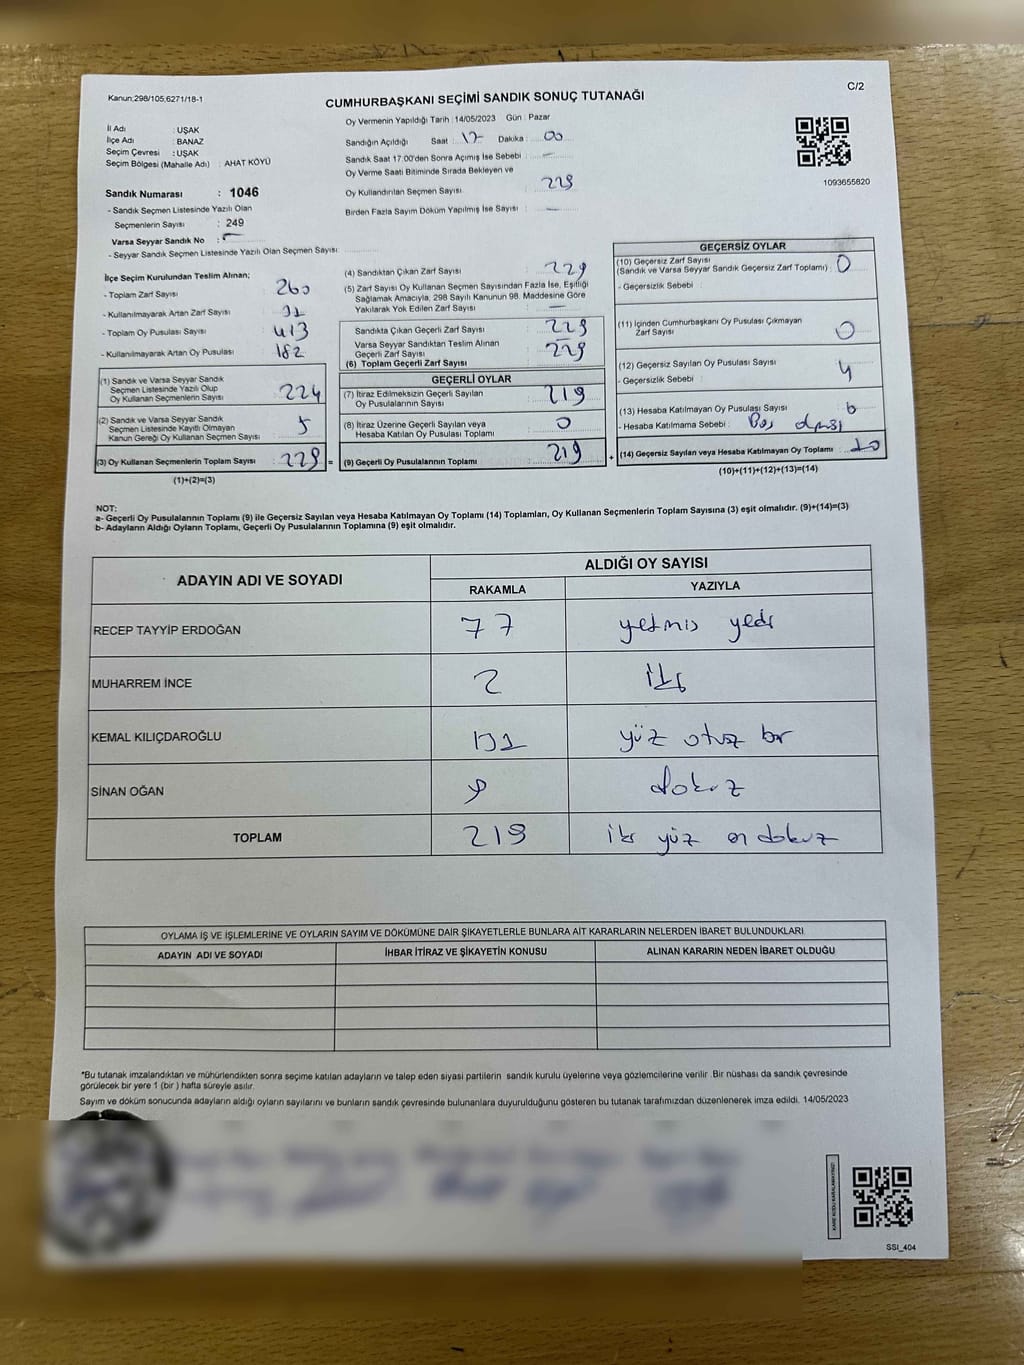 Kanun;298/105,6271/18-1
C/2
CUMHURBAŞKANI SEÇİMİ SANDIK SONUÇ TUTANAĞI
Oy Vermenin Yapıldığı Tarih :14/05/2023 Gün : Pazar
İl Adı : UŞAK
İlçe Adı : BANAZ
Seçim Çevresi : UŞAK
Seçim Bölgesi (Mahalle Adı) : AHAT KÖYÜ
Sandığın Açıldığı Saat : 17 Dakika : 00
Sandık Saat 17:00'den Sonra Açımış İse Sebebi : —
Oy Verme Saati Bitiminde Sırada Bekleyen ve
Oy Kullandırılan Seçmen Sayısı : 229
Birden Fazla Sayım Döküm Yapılmış İse Sayısı : —
1093655820
Sandık Numarası : 1046
- Sandık Seçmen Listesinde Yazılı Olan
Seçmenlerin Sayısı : 249
Varsa Seyyar Sandık No : —
- Seyyar Sandık Seçmen Listesinde Yazılı Olan Seçmen Sayısı:
İlçe Seçim Kurulundan Teslim Alınan;
- Toplam Zarf Sayısı : 260
- Kullanılmayarak Artan Zarf Sayısı : 31
- Toplam Oy Pusulası Sayısı : 413
- Kullanılmayarak Artan Oy Pusulası : 182
(1) Sandık ve Varsa Seyyar Sandık
Seçmen Listesinde Yazılı Olup
Oy Kullanan Seçmenlerin Sayısı : 224
(2) Sandık ve Varsa Seyyar Sandık
Seçmen Listesinde Kayıtlı Olmayan
Kanun Gereği Oy Kullanan Seçmen Sayısı : 5
(3) Oy Kullanan Seçmenlerin Toplam Sayısı : 229 =
(1)+(2)=(3)
(4) Sandıktan Çıkan Zarf Sayısı : 229
(5) Zarf Sayısı Oy Kullanan Seçmen Sayısından Fazla İse, Eşitliği
Sağlamak Amacıyla, 298 Sayılı Kanunun 98. Maddesine Göre
Yakılarak Yok Edilen Zarf Sayısı : —
Sandıkta Çıkan Geçerli Zarf Sayısı : 229
Varsa Seyyar Sandıktan Teslim Alınan
Geçerli Zarf Sayısı : —
(6) Toplam Geçerli Zarf Sayısı : 229
GEÇERLİ OYLAR
(7) İtiraz Edilmeksizin Geçerli Sayılan
Oy Pusulalarının Sayısı : 219
(8) İtiraz Üzerine Geçerli Sayılan veya
Hesaba Katılan Oy Pusulası Toplamı : 0
(9) Geçerli Oy Pusulalarının Toplamı : 219 +
GEÇERSİZ OYLAR
(10) Geçersiz Zarf Sayısı
(Sandık ve Varsa Seyyar Sandık Geçersiz Zarf Toplamı) : 0
- Geçersizlik Sebebi :
(11) İçinden Cumhurbaşkanı Oy Pusulası Çıkmayan
Zarf Sayısı : 0
(12) Geçersiz Sayılan Oy Pusulası Sayısı : 4
- Geçersizlik Sebebi :
(13) Hesaba Katılmayan Oy Pusulası Sayısı : 6
- Hesaba Katılmama Sebebi : Boş
(14) Geçersiz Sayılan veya Hesaba Katılmayan Oy Toplamı : 10
(10)+(11)+(12)+(13)=(14)
NOT:
a- Geçerli Oy Pusulalarının Toplamı (9) ile Geçersiz Sayılan veya Hesaba Katılmayan Oy Toplamı (14) Toplamları, Oy Kullanan Seçmenlerin Toplam Sayısına (3) eşit olmalıdır. (9)+(14)=(3)
b- Adayların Aldığı Oyların Toplamı, Geçerli Oy Pusulalarının Toplamına (9) eşit olmalıdır.
ADAYIN ADI VE SOYADI
ALDIĞI OY SAYISI
RAKAMLA YAZIYLA
RECEP TAYYİP ERDOĞAN 77 yetmiş yedi
MUHARREM İNCE 2 iki
KEMAL KILIÇDAROĞLU 131 yüz otuz bir
SİNAN OĞAN 9 dokuz
TOPLAM 219 iki yüz on dokuz
OYLAMA İŞ VE İŞLEMLERİNE VE OYLARIN SAYIM VE DÖKÜMÜNE DAİR ŞİKAYETLERLE BUNLARA AİT KARARLARIN NELERDEN İBARET BULUNDUKLARI
ADAYIN ADI VE SOYADI İHBAR İTİRAZ VE ŞİKAYETİN KONUSU ALINAN KARARIN NEDEN İBARET OLDUĞU
*Bu tutanak imzalandıktan ve mühürlendikten sonra seçime katılan adayların ve talep eden siyasi partilerin sandık kurulu üyelerine veya gözlemcilerine verilir .Bir nüshası da sandık çevresinde
görülecek bir yere 1 (bir ) hafta süreyle asılır.
Sayım ve döküm sonucunda adayların aldığı oyların sayılarını ve bunların sandık çevresinde bulunanlara duyurulduğunu gösteren bu tutanak tarafımızdan düzenlenerek imza edildi. 14/05/2023
SSI_404